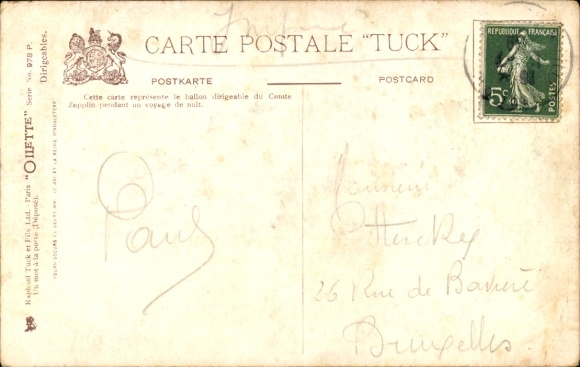 CARTE POSTALE "TUCK"
POSTKARTE
POSTCARD
Cette carte représente le ballon dirigeable du Comte
Zepplin pendant un voyage de nuit.
REPUBLIQUE FRANÇAISE
5c
POSTES
Raphael Tuck et Fils Ltd. - Paris "OIlETTE" Serie No. 978 P.
Un mot à la poste (Déposé). Dirigeables.
Paul
Monsieur
26 Rue de
Bruxelles.